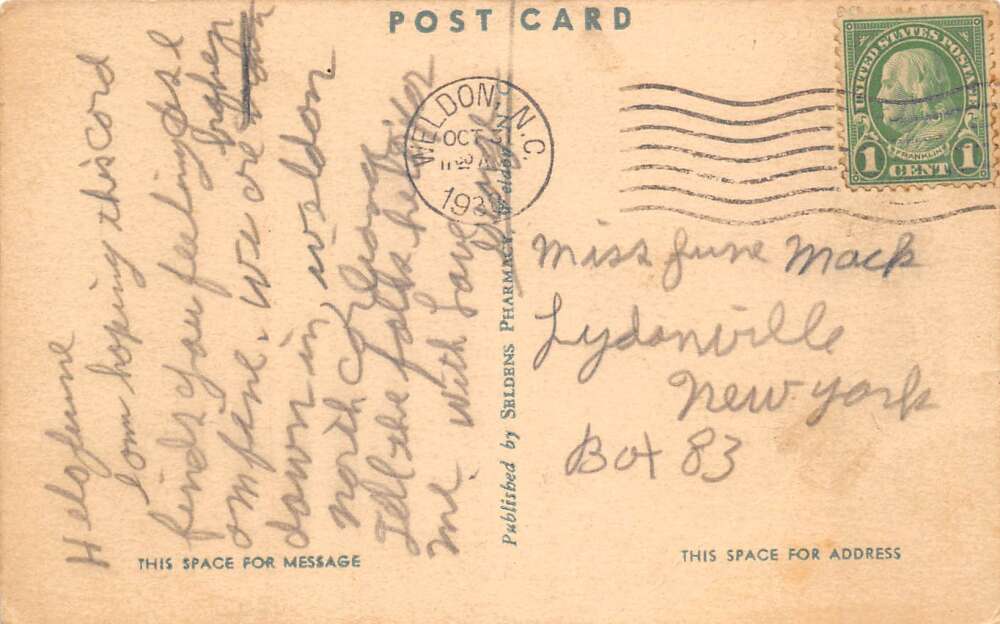 POST CARD
UNITED STATES POSTAGE
FRANKLIN
1 CENT 1
WELDON, N.C.
OCT
193
Helo June
I am hoping this card
finds you feeling
fine. We are
down in Weldon
North
Tell the folks hello for
me. With Love
Published by SELDENS PHARMACY, Weldon
Miss June Mack
Lydonville
New York
Box 83
THIS SPACE FOR MESSAGE
THIS SPACE FOR ADDRESS